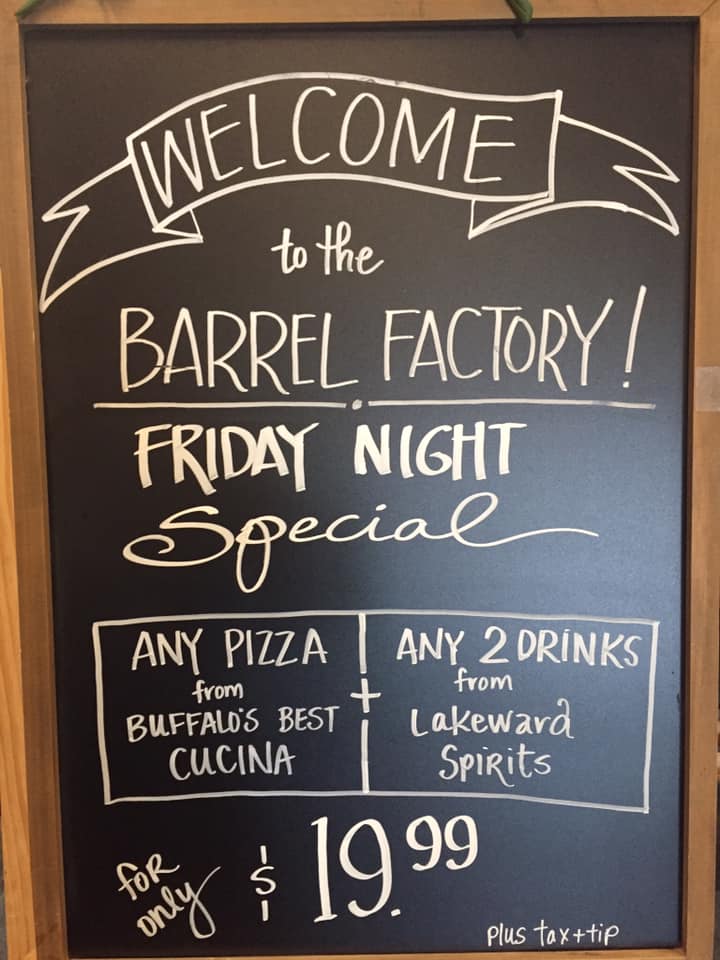 WELCOME
to the
BARREL FACTORY!
FRIDAY NIGHT
Special
ANY PIZZA
from
BUFFALO'S BEST
CUCINA
+
ANY 2 DRINKS
from
Lakeward
Spirits
for only
$19.99
plus tax+tip